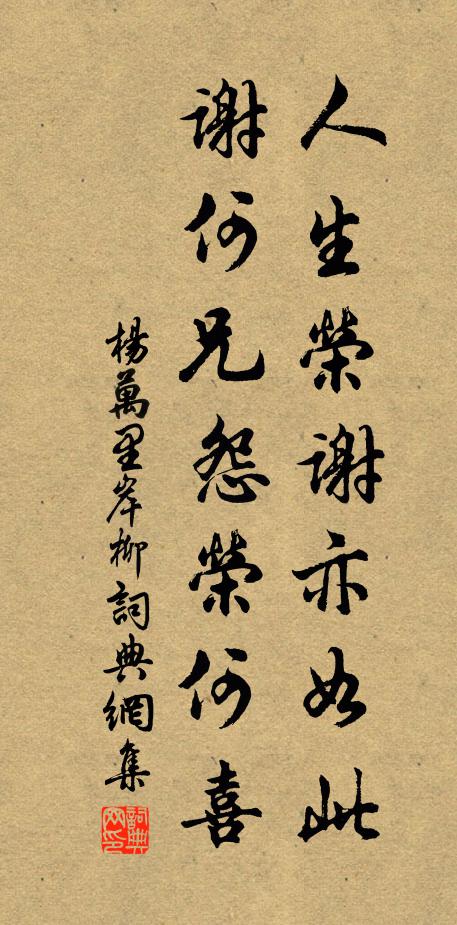 人生榮謝亦如此
謝何足怨榮何喜
楊萬里岸柳詞典網集
詞典
网印